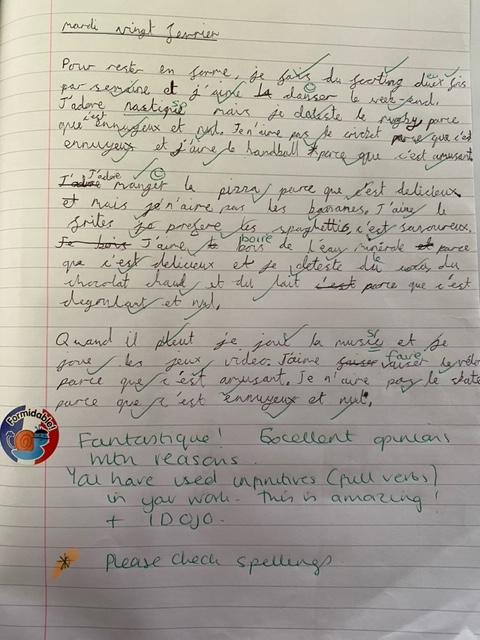 mardi vingt fevrier
Pour rester en forme, je fais du footing deux fois
par semaine et j'aime la danser le week-end.
J'adore nastique sp mais je deteste le rugby parce
que c'est ennuyeux et nul. Je n'aime pas le cricket parce que c'est
ennuyeux et j'aime le handball parce que c'est amusant.
J'adore J'adore manger la pizza parce que c'est delicieux
et mais je n'aime pas les bananes. J'aime le
frites je prefere les spaghettis, c'est savoureux.
Je bois J'aime boire bois de l'eau minérale et parce
que c'est delicieux et je deteste du coca, du
chocolat chaud et du lait c'est parce que c'est
degoultant et nul.
Quand il pleut je joue la music sp et je
joue les jeux video. J'aime faire le vélo
parce que c'est amusant. Je n'aime pas le skate
parce que c'est ennuyeux et nul.
Formidable!
Fantastique! Excellent opinions
with reasons.
You have used infinitives (full verbs)
in your work. This is amazing!
+ 1 DOJO.
* Please check spellings